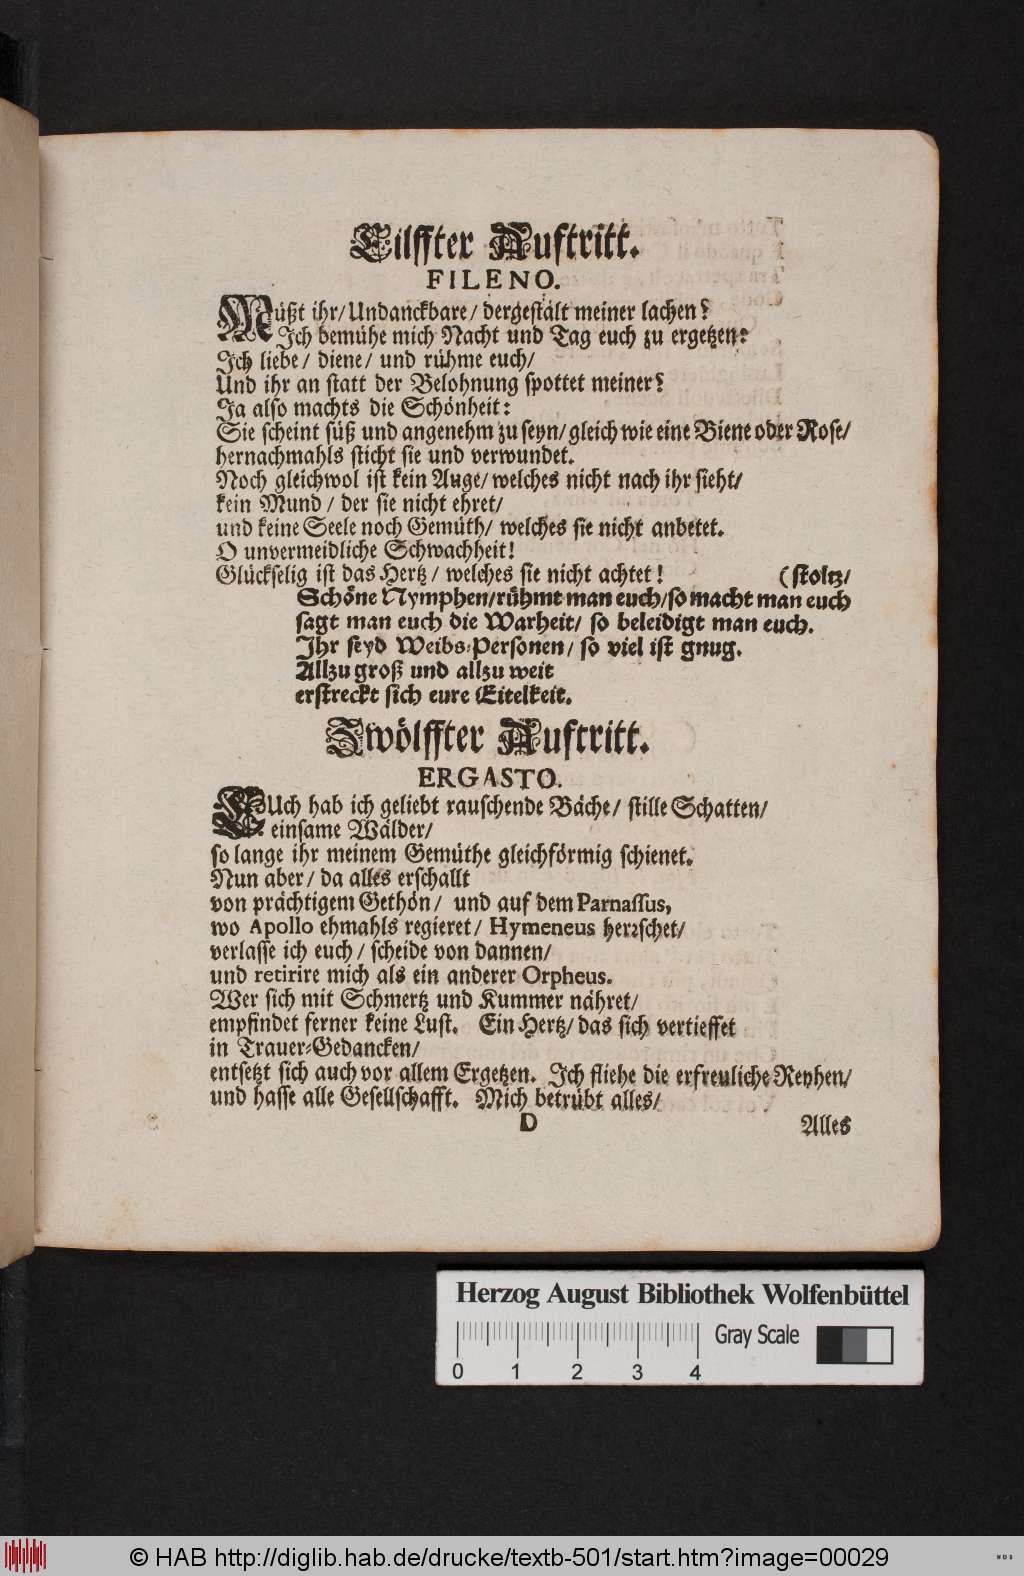 Eilffter Auftritt.
FILENO.
Müßt ihr/ Undanckbare/ dergestalt meiner lachen?
Ich bemühe mich Nacht und Tag euch zu ergetzen:
Ich liebe/ diene/ und rühme euch/
Und ihr an statt der Belohnung spottet meiner?
Ja also machts die Schönheit:
Sie scheint süß und angenehm zu seyn/ gleich wie eine Biene oder Rose/
hernachmahls sticht sie und verwundet.
Noch gleichwol ist kein Auge/ welches nicht nach ihr sieht/
kein Mund / der sie nicht ehret/
und keine Seele noch Gemüth/ welches sie nicht anbetet.
O unvermeidliche Schwachheit!
Glückselig ist das Hertz / welches sie nicht achtet! (stoltz/
Schöne Nymphen/rühmt man euch/so macht man euch
sagt man euch die Warheit/ so beleidigt man euch.
Ihr seyd Weibs-Personen/ so viel ist gnug.
Allzu groß und allzu weit
erstreckt sich eure Eitelkeit.
Zwölffter Auftritt.
ERGASTO.
EUch hab ich geliebt rauschende Bäche/ stille Schatten/
einsame Wälder/
so lange ihr meinem Gemüthe gleichförmig schienet.
Nun aber/ da alles erschallt
von prächtigem Gethön/ und auf dem Parnassus,
wo Apollo ehmahls regieret/ Hymeneus herrschet/
verlasse ich euch/ scheide von dannen/
und retirire mich als ein anderer Orpheus.
Wer sich mit Schmertz und Kummer nähret/
empfindet ferner keine Lust. Ein Hertz/ das sich vertieffet
in Trauer-Gedancken/
entsetzt sich auch vor allem Ergetzen. Ich fliehe die erfreuliche Reyhen/
und hasse alle Gesellschafft. Mich betrübt alles/
D Alles
Herzog August Bibliothek Wolfenbüttel
Gray Scale
0 1 2 3 4
© HAB http://diglib.hab.de/drucke/textb-501/start.htm?image=00029